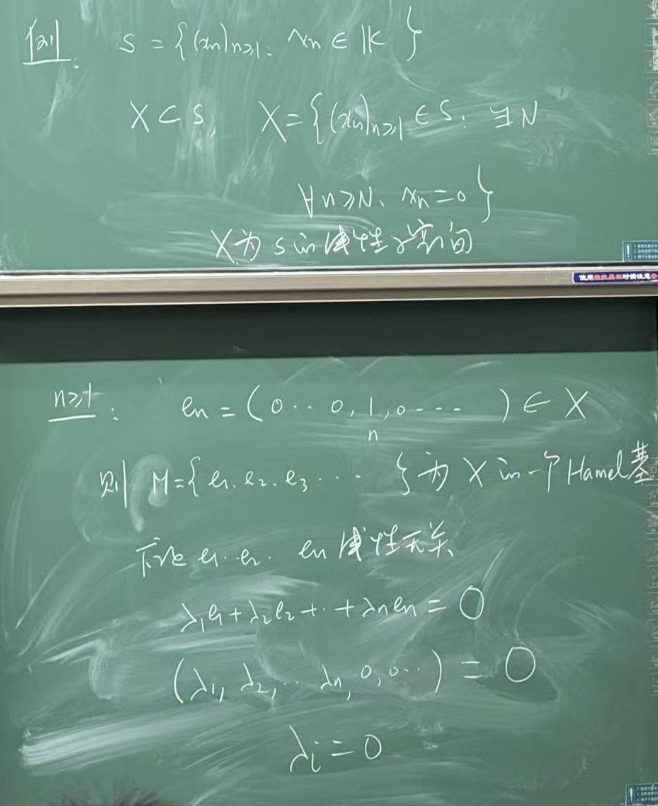 例. S = {(xn)n≥1: xn ∈ K}
X ⊂ S, X = {(xn)n≥1 ∈ S: ∃N
∀n≥N, xn=0}
X为S的线性子空间
n≥1: en = (0 ·· 0, 1, 0 - - - - ) ∈ X
n
则 M={e1. e2. e3 · · · · } 为X的一个Hamel基
下证 e1. e2. en 线性无关
λ1e1+λ2e2+··+λnen = 0
(λ1, λ2, ·· λn, 0, 0··) = 0
λi = 0